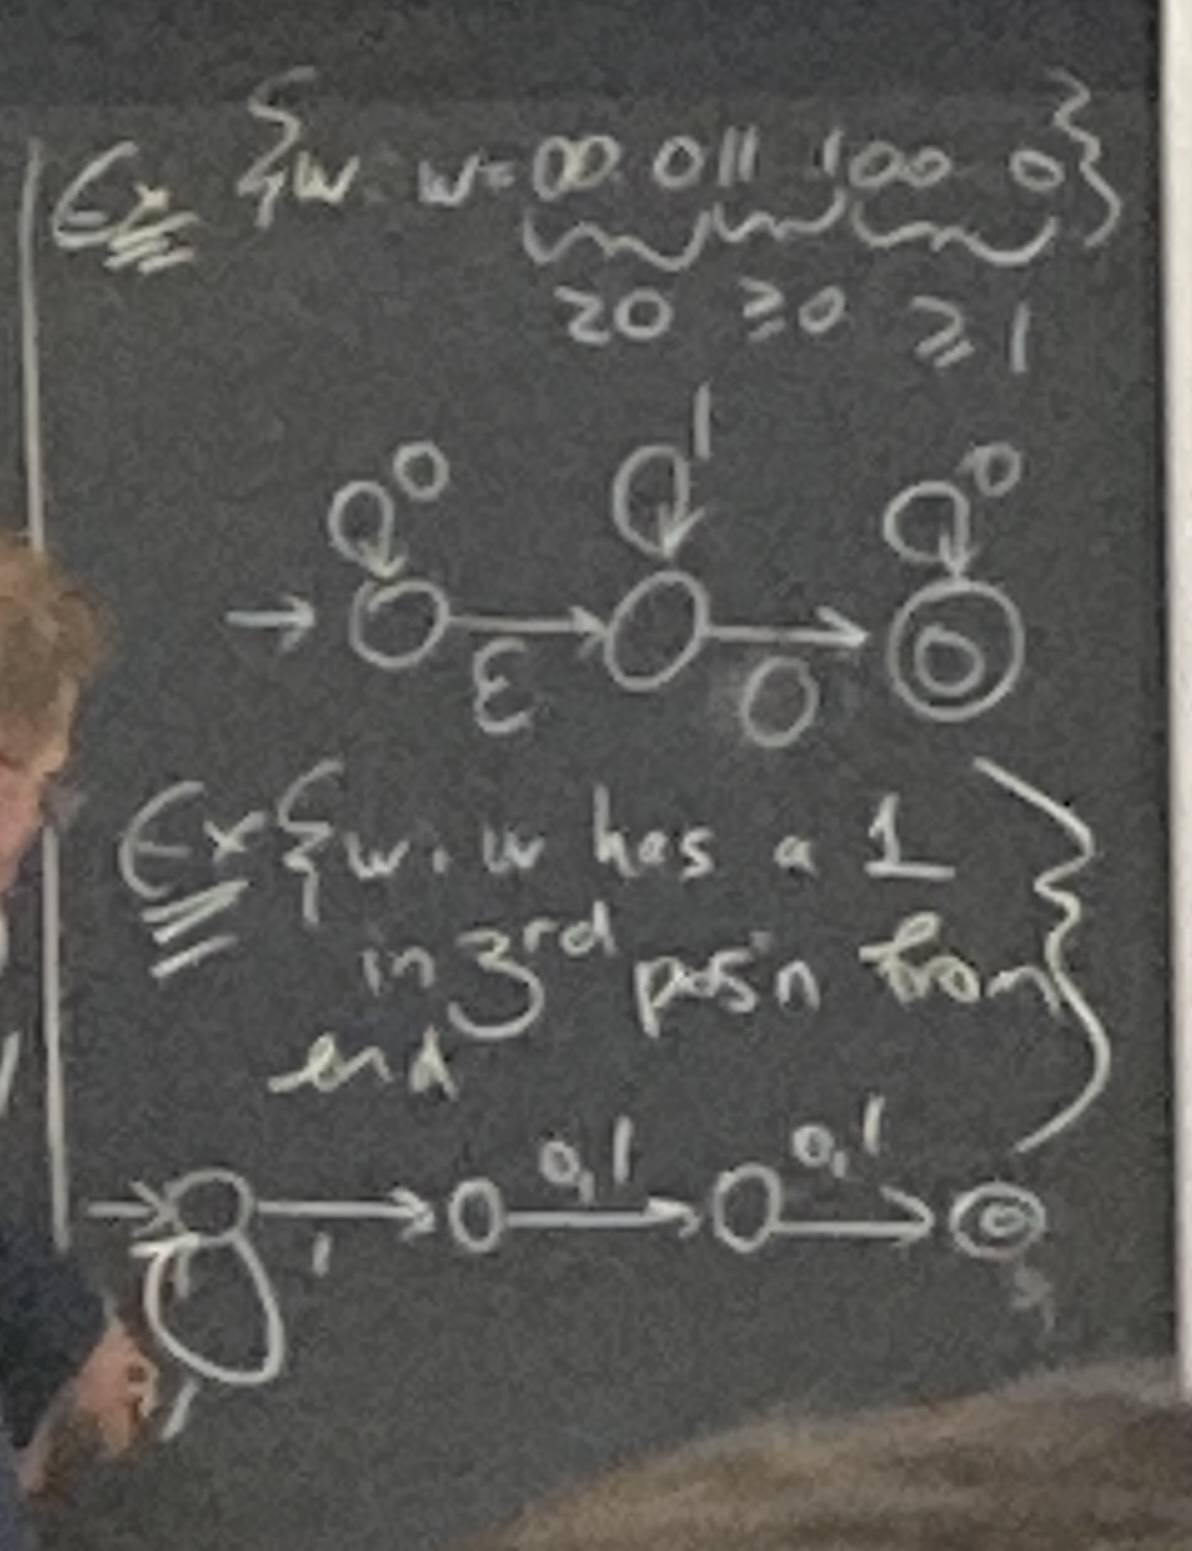 Ex {w: w=00..011..100..0}
≥0 ≥0 ≥1
0 1 0
ε 0
Ex {w: w has a 1
in 3rd pos'n from
end }
0,1 0,1
1